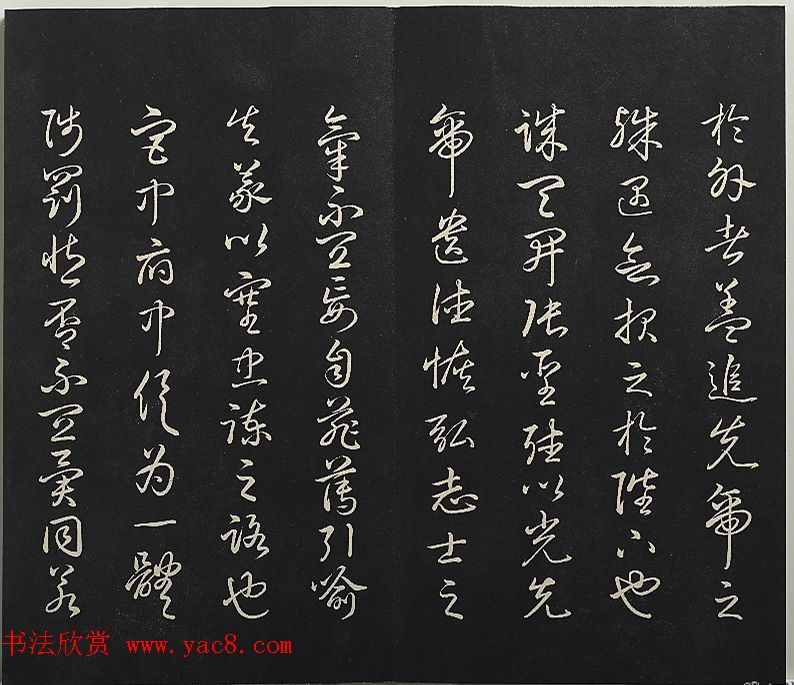 於外者蓋追先帝之
殊遇欲報之於陛下也
誠宜開張聖聽以光先
帝遺德恢弘志士之
氣不宜妄自菲薄引喻
失義以塞忠諫之路也
宮中府中俱為一體
陟罰臧否不宜異同若
书法欣赏 www.yac8.com